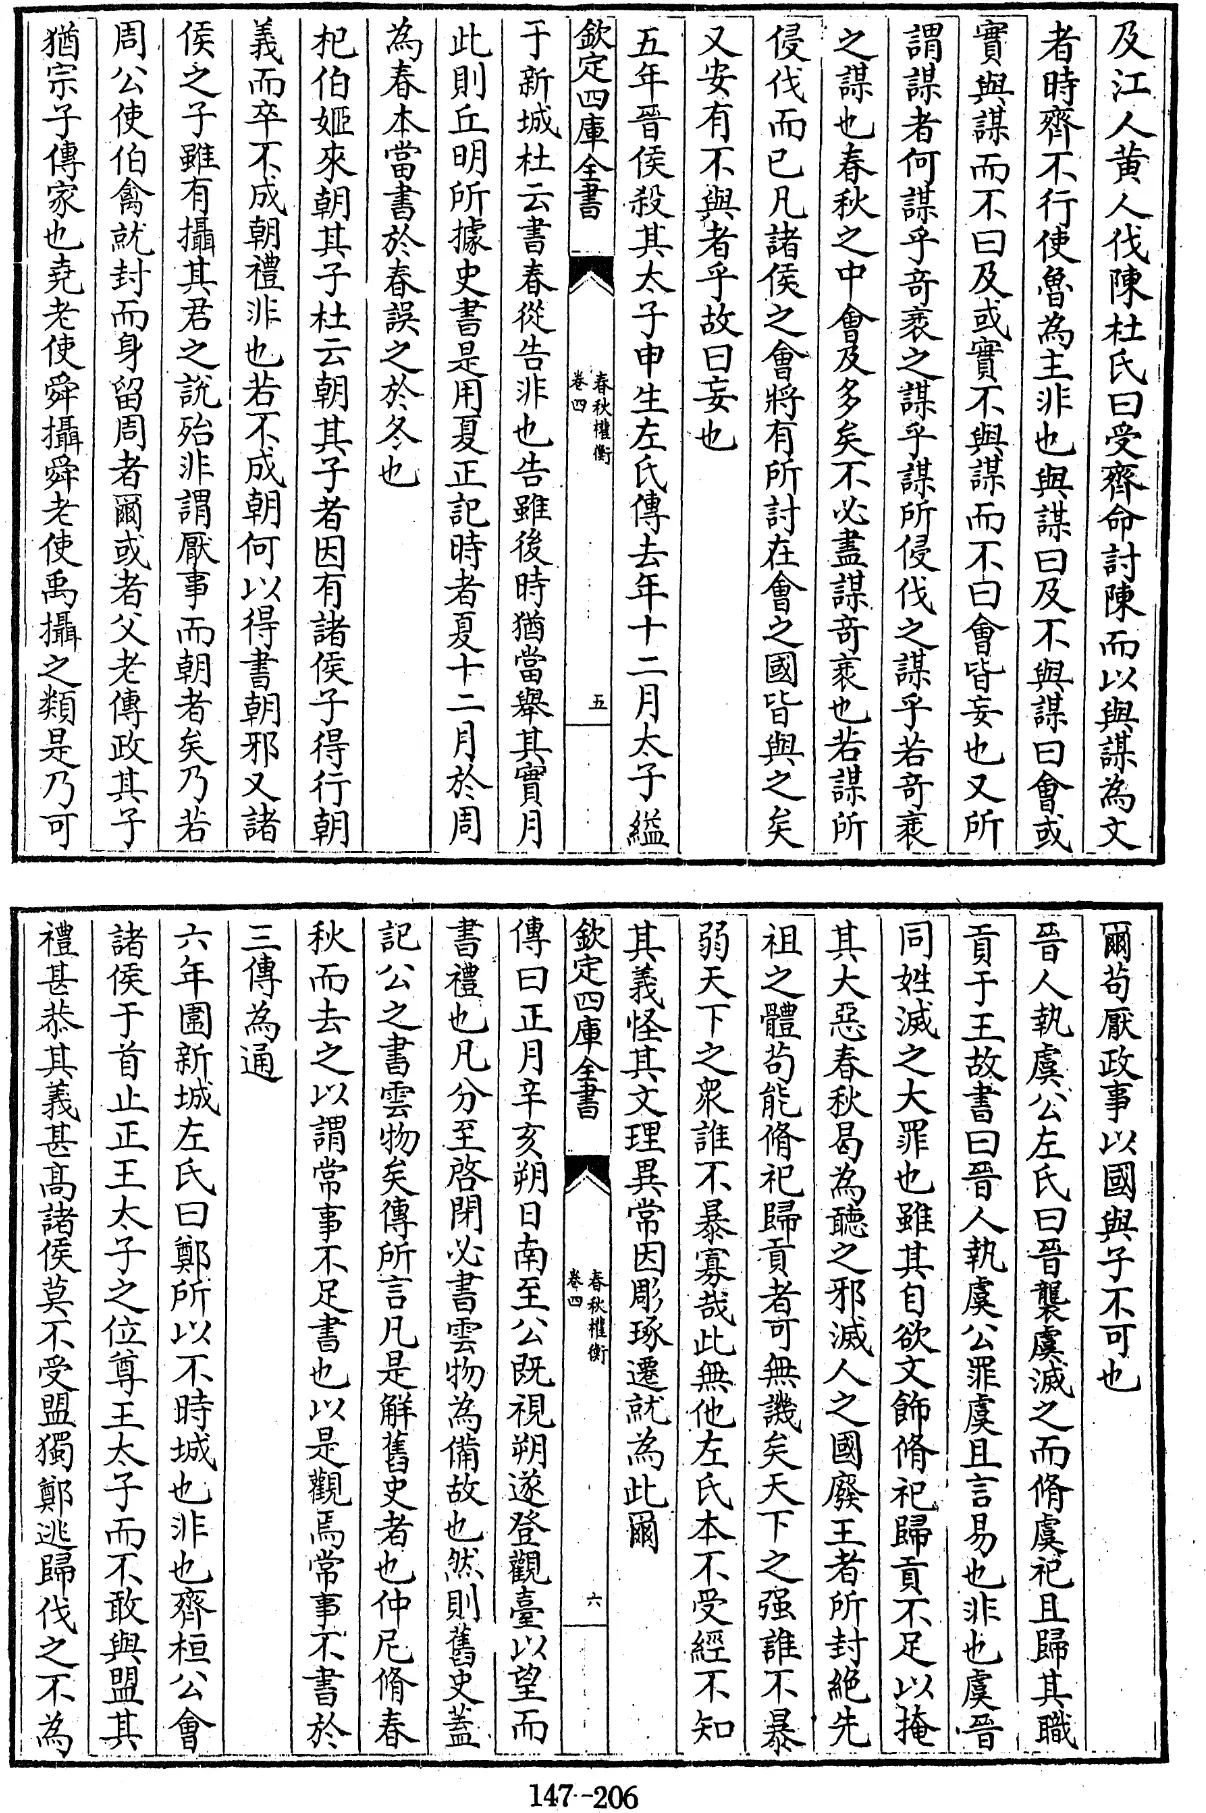 及江人黄人伐陳杜氏曰受齊命討陳而以與謀為文
者時齊不行使魯為主非也與謀曰及不與謀曰會或
實與謀而不曰及或實不與謀而不曰會皆妄也又所
謂謀者何謀乎竒衺之謀乎謀所侵伐之謀乎若竒衺
之謀也春秋之中會及多矣不必盡謀竒衺也若謀所
侵伐而已凡諸侯之會將有所討在會之國皆與之矣
又安有不與者乎故曰妄也
五年晉侯殺其太子申生左氏傳去年十二月太子縊
欽定四庫全書
春秋權衡
卷四
五
于新城杜云書春從告非也告雖後時猶當舉其實月
此則丘明所據史書是用夏正記時者夏十二月於周
為春本當書於春誤之於冬也
杞伯姬來朝其子杜云朝其子者因有諸侯子得行朝
義而卒不成朝禮非也若不成朝何以得書朝邪又諸
侯之子雖有攝其君之說殆非謂厭事而朝者矣乃若
周公使伯禽就封而身留周者爾或者父老傳政其子
猶宗子傳家也堯老使舜攝舜老使禹攝之類是乃可
爾茍厭政事以國與子不可也
晉人執虞公左氏曰晉襲虞滅之而脩虞祀且歸其職
貢于王故書曰晉人執虞公罪虞且言易也非也虞晉
同姓滅之大罪也雖其自欲文飾脩祀歸貢不足以掩
其大惡春秋曷為聽之邪滅人之國廢王者所封絶先
祖之體茍能脩祀歸貢者可無譏矣天下之强誰不暴
弱天下之衆誰不暴寡哉此無他左氏本不受經不知
其義怪其文理異常因彫琢遷就為此爾
欽定四庫全書
春秋權衡
卷四
六
傳曰正月辛亥朔日南至公既視朔遂登觀臺以望而
書禮也凡分至啓閉必書雲物為備故也然則舊史蓋
記公之書雲物矣傳所言凡是解舊史者也仲尼脩春
秋而去之以謂常事不足書也以是觀焉常事不書於
三傳為通
六年圍新城左氏曰鄭所以不時城也非也齊桓公會
諸侯于首止正王太子之位尊王太子而不敢與盟其
禮甚恭其義甚髙諸侯莫不受盟獨鄭逃歸伐之不為
147--206